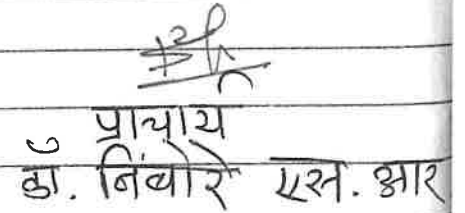 प्राचार्य
डॉ. निंबोरे एस. आर